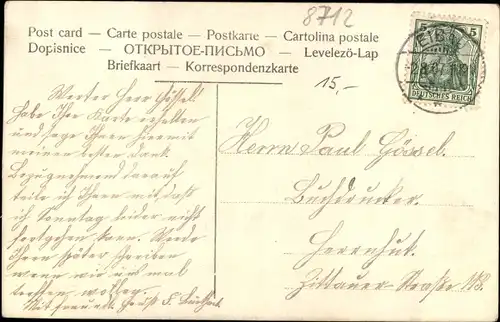 8712
Post card — Carte postale — Postkarte — Cartolina postale
Dopisnice — ОТКРЫТОЕ-ПИСЬМО — Levelezö-Lap
Briefkaart — Korrespondenzkarte
15,-
5
DEUTSCHES REICH
Werter Herr Gössel!
Habe Ihre Karte erhalten
und sage Ihnen hiermit
meinen besten Dank.
Bezugnehmend darauf
teile ich Ihnen mit, daß
ich Sonntag leider nicht
fortgehen kann. Werde
Ihnen später schreiben
wenn wir uns mal
treffen wollen.
Mit freundl. Gruß F.
Herrn Paul Gössel.
Buchdrucker.
Herrnhut.
Zittauer-Straße